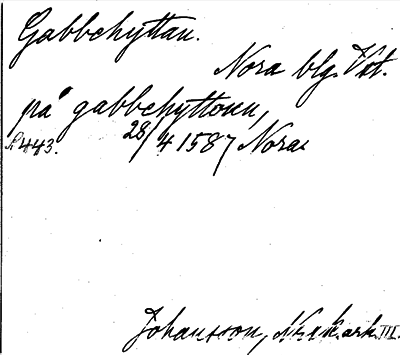 Gabbehyttan.
Nora blg. Vst.
på gabbehyttonn,
s. 443. 28/4 1587 Nora.
Johansson, Nora k. ark. III.